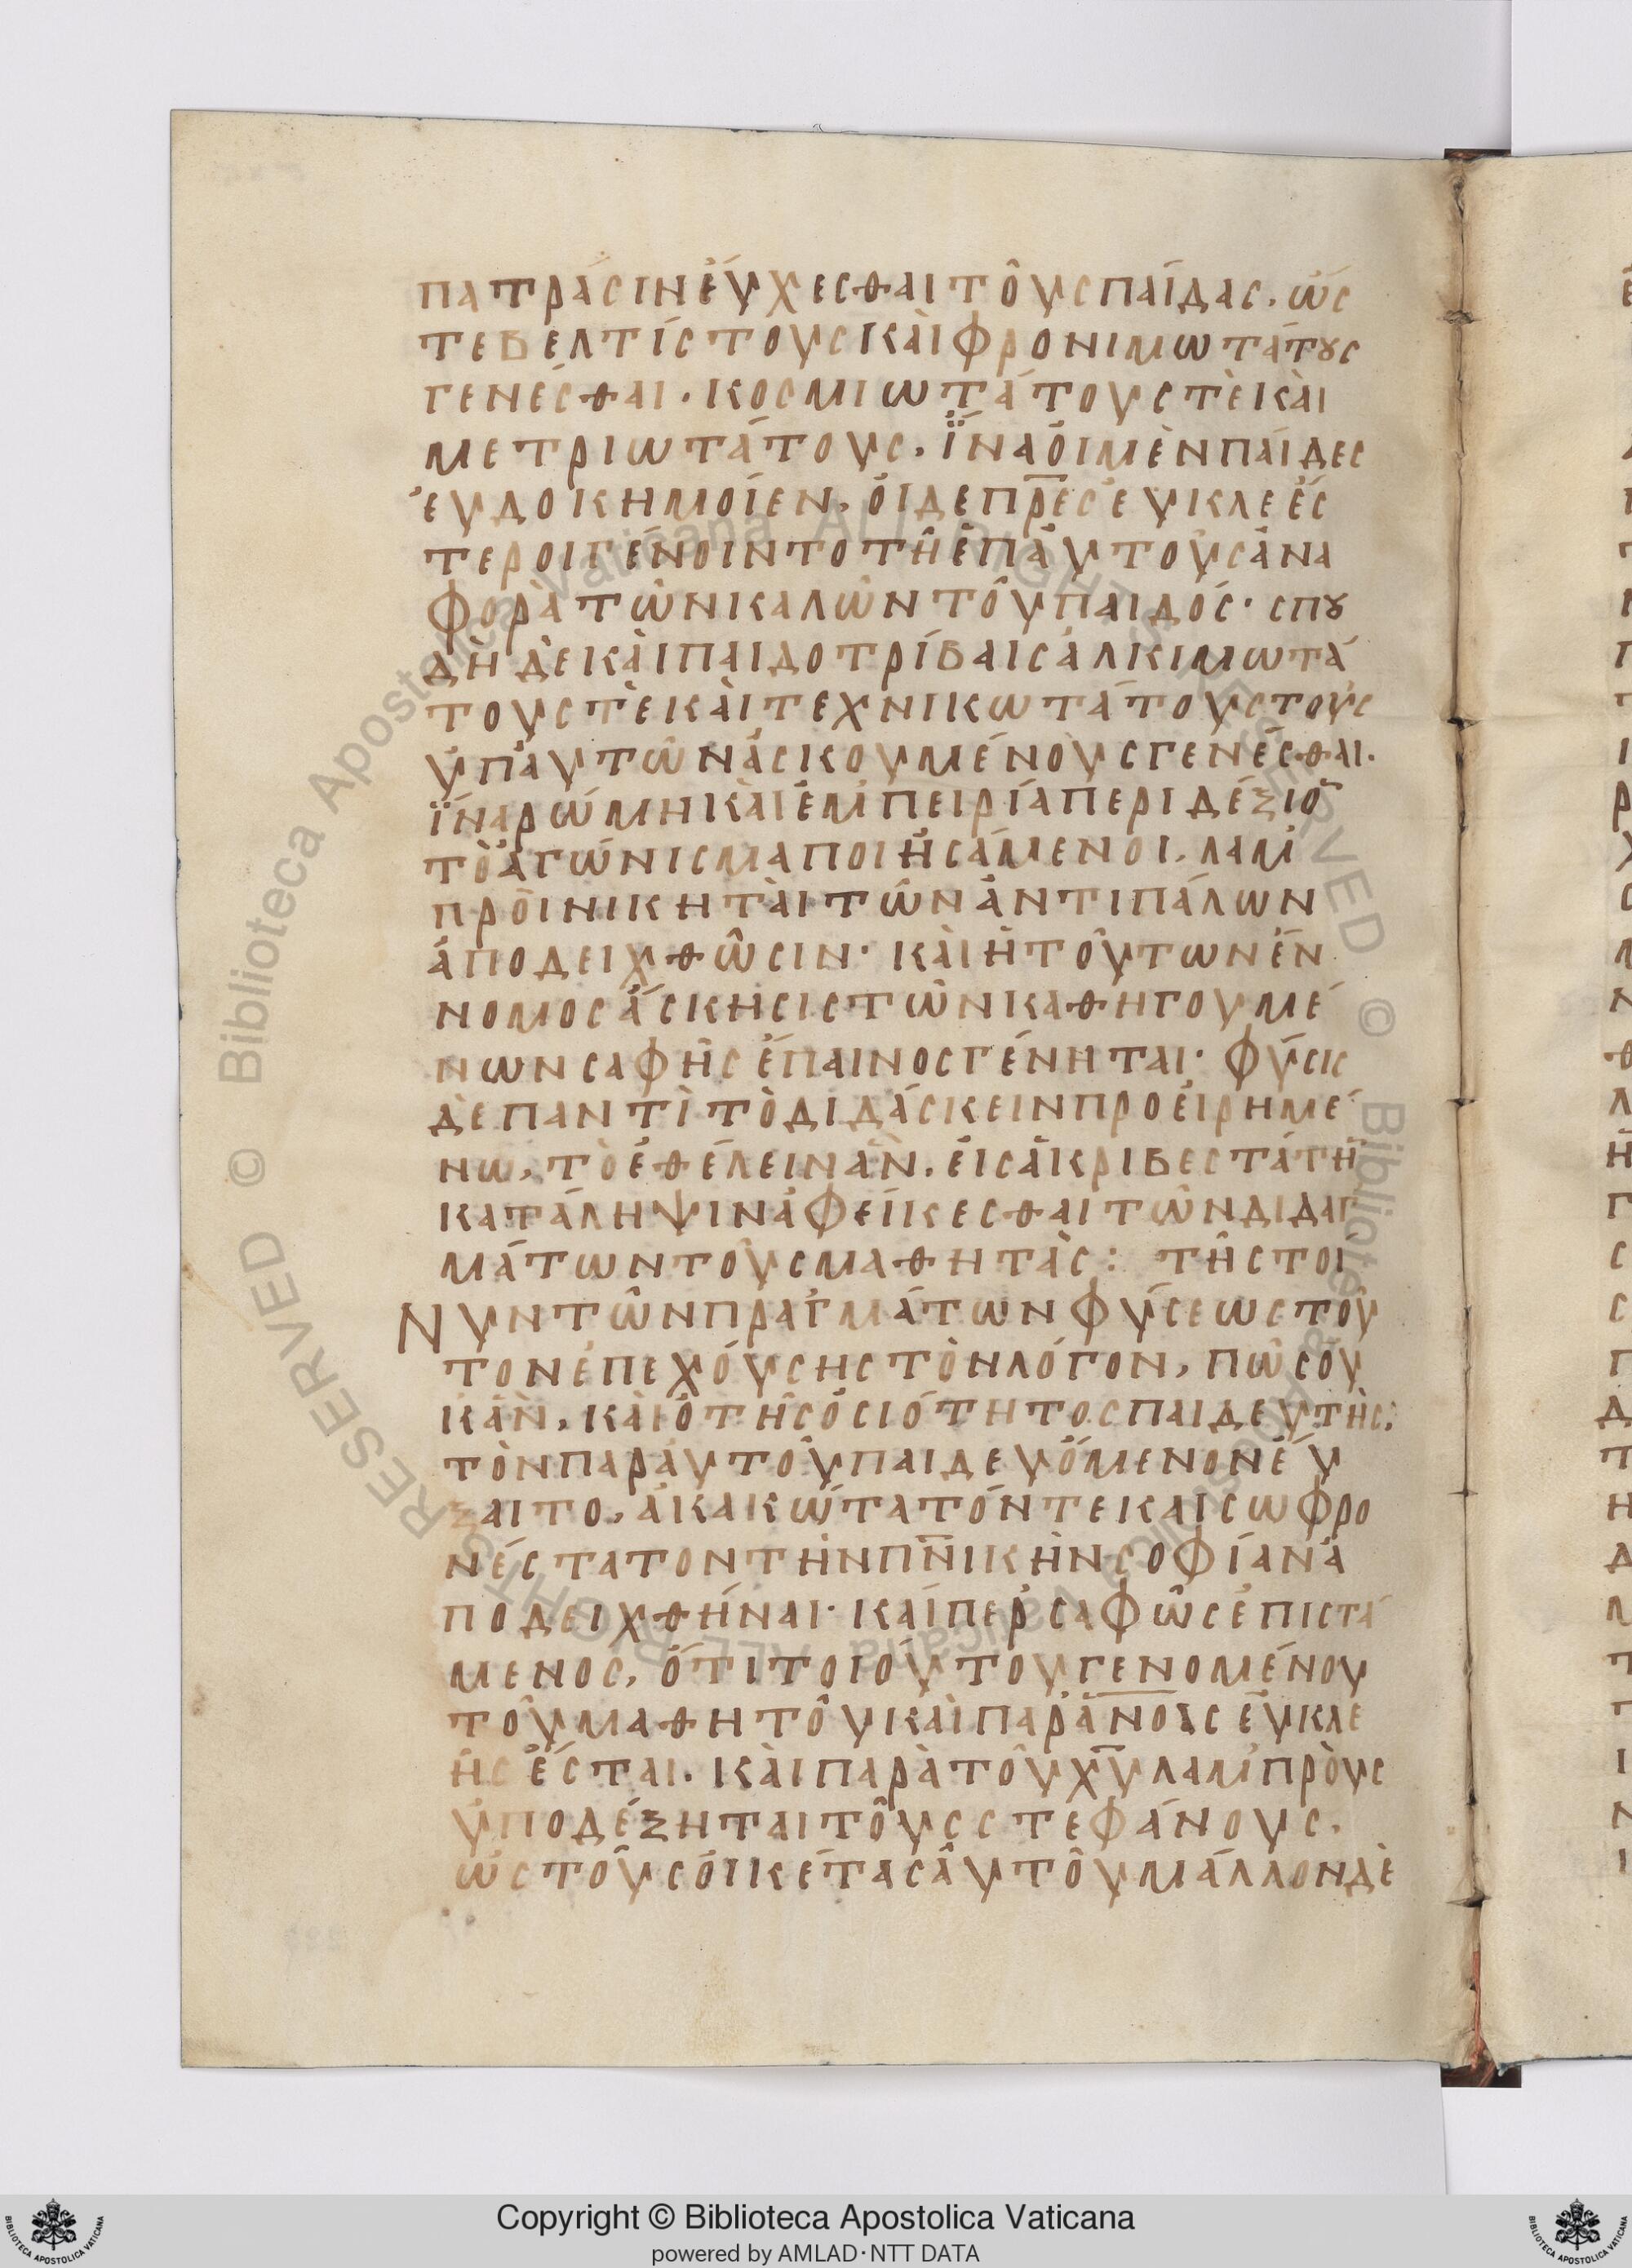 πατράσιν ἐύχεσθαι τοῦς παίδας. ὥς
τε βελτίστους καὶ φρονιμωτάτȣς
γενέσθαι. κοσμιωτάτους τὲ καὶ
μετριωτάτους. ἵνα ὁι μὲν παίδες
ἐυδοκημοίεν, ὁι δε πρες ἐυκλεέσ
τεροι γένοιντο τῆ ἐπ ἀυτοὺς ἀνα
φορὰ τῶν καλῶν τοῦ παιδός· σπȣ
δὴ δὲ καὶ παιδοτρίβαις ἀλκιμωτά
τους τὲ καὶ τεχνικωτάτους τοὺς
ὑπ ἀυτῶν ἀσκουμένους γενέσθαι.
ἵνα ρώμη καὶ ἐμπειρία περιδέξιο
τὸ ἀγώνισμα ποιησάμενοι, λαμ
προὶ νικηταὶ τῶν ἀντιπάλων
ἀποδειχθῶσιν· καὶ ἡ τοῦτων ἔν
νομος ἄσκησις τῶν καθηγουμέ
νων σαφὴς ἔπαινος γένηται· φύσις
δὲ παντὶ τὸ διδάσκειν προειρημέ
νω, τὸ ἐθέλειν ἂν, ἐις ἀκριβεστάτη
κατάληψιν ἀφείκεσθαι τῶν διδαγ
μάτων τοὺς μαθητὰς: τῆς τοι
νυν τῶν πραγμάτων φύσεως τοῦ
τον ἐπεχούσης τὸν λόγον, πῶς ὀυ
κἂν, καὶ ὁ τῆς ὁσιότητος παιδευτὴς,
τὸν παρ ἀυτοῦ παιδευόμενον ἔυ
ξαιτο, ἀκακώτατόν τε και σωφρο
νέστατον τὴν πνικὴν σοφίαν ἀ
ποδειχθήναι· καίπερ σαφῶς ἐπιστά
μενος, ὅτι τοιούτου γενομένου
τοῦ μαθητοῦ καὶ παρ ἀνοις ἐυκλε
ὴς ἔσται. καὶ παρὰ τοῦ χυ λαμπροὺς
ὑποδέξηται τοῦς στεφάνους.
ὡς τοὺς ὀικέτας ἀυτοῦ μάλλον δὲ
Copyright © Biblioteca Apostolica Vaticana
powered by AMLAD·NTT DATA